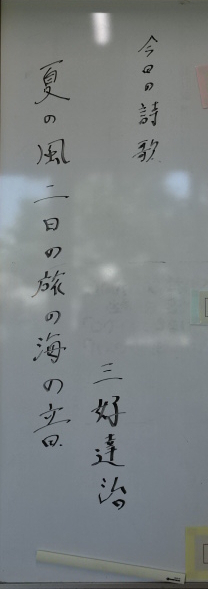 今日の詩歌
夏の風二日の旅の海の音
三好達治